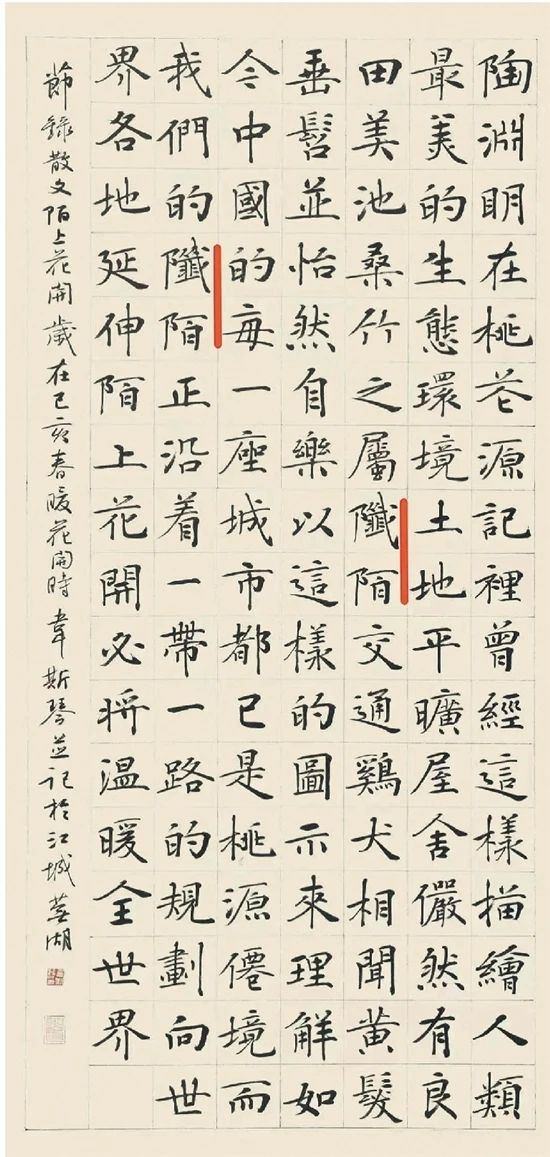 陶淵眀在桃花源記裡曾經這樣描繪人類
最美的生態環境土地平曠屋舍儼然有良
田美池桑竹之屬陌交通鷄犬相聞黃髮
垂髫並怡然自樂以這樣的圖示來理解如
今中國的每一座城市都已是桃源僊境而
我們的陌正沿着一帶一路的規劃向世
界各地延伸陌上花開必將溫暖全世界
節錄散文陌上花開歲在己亥春暖花開時韋斯琴並記於江城蕪湖